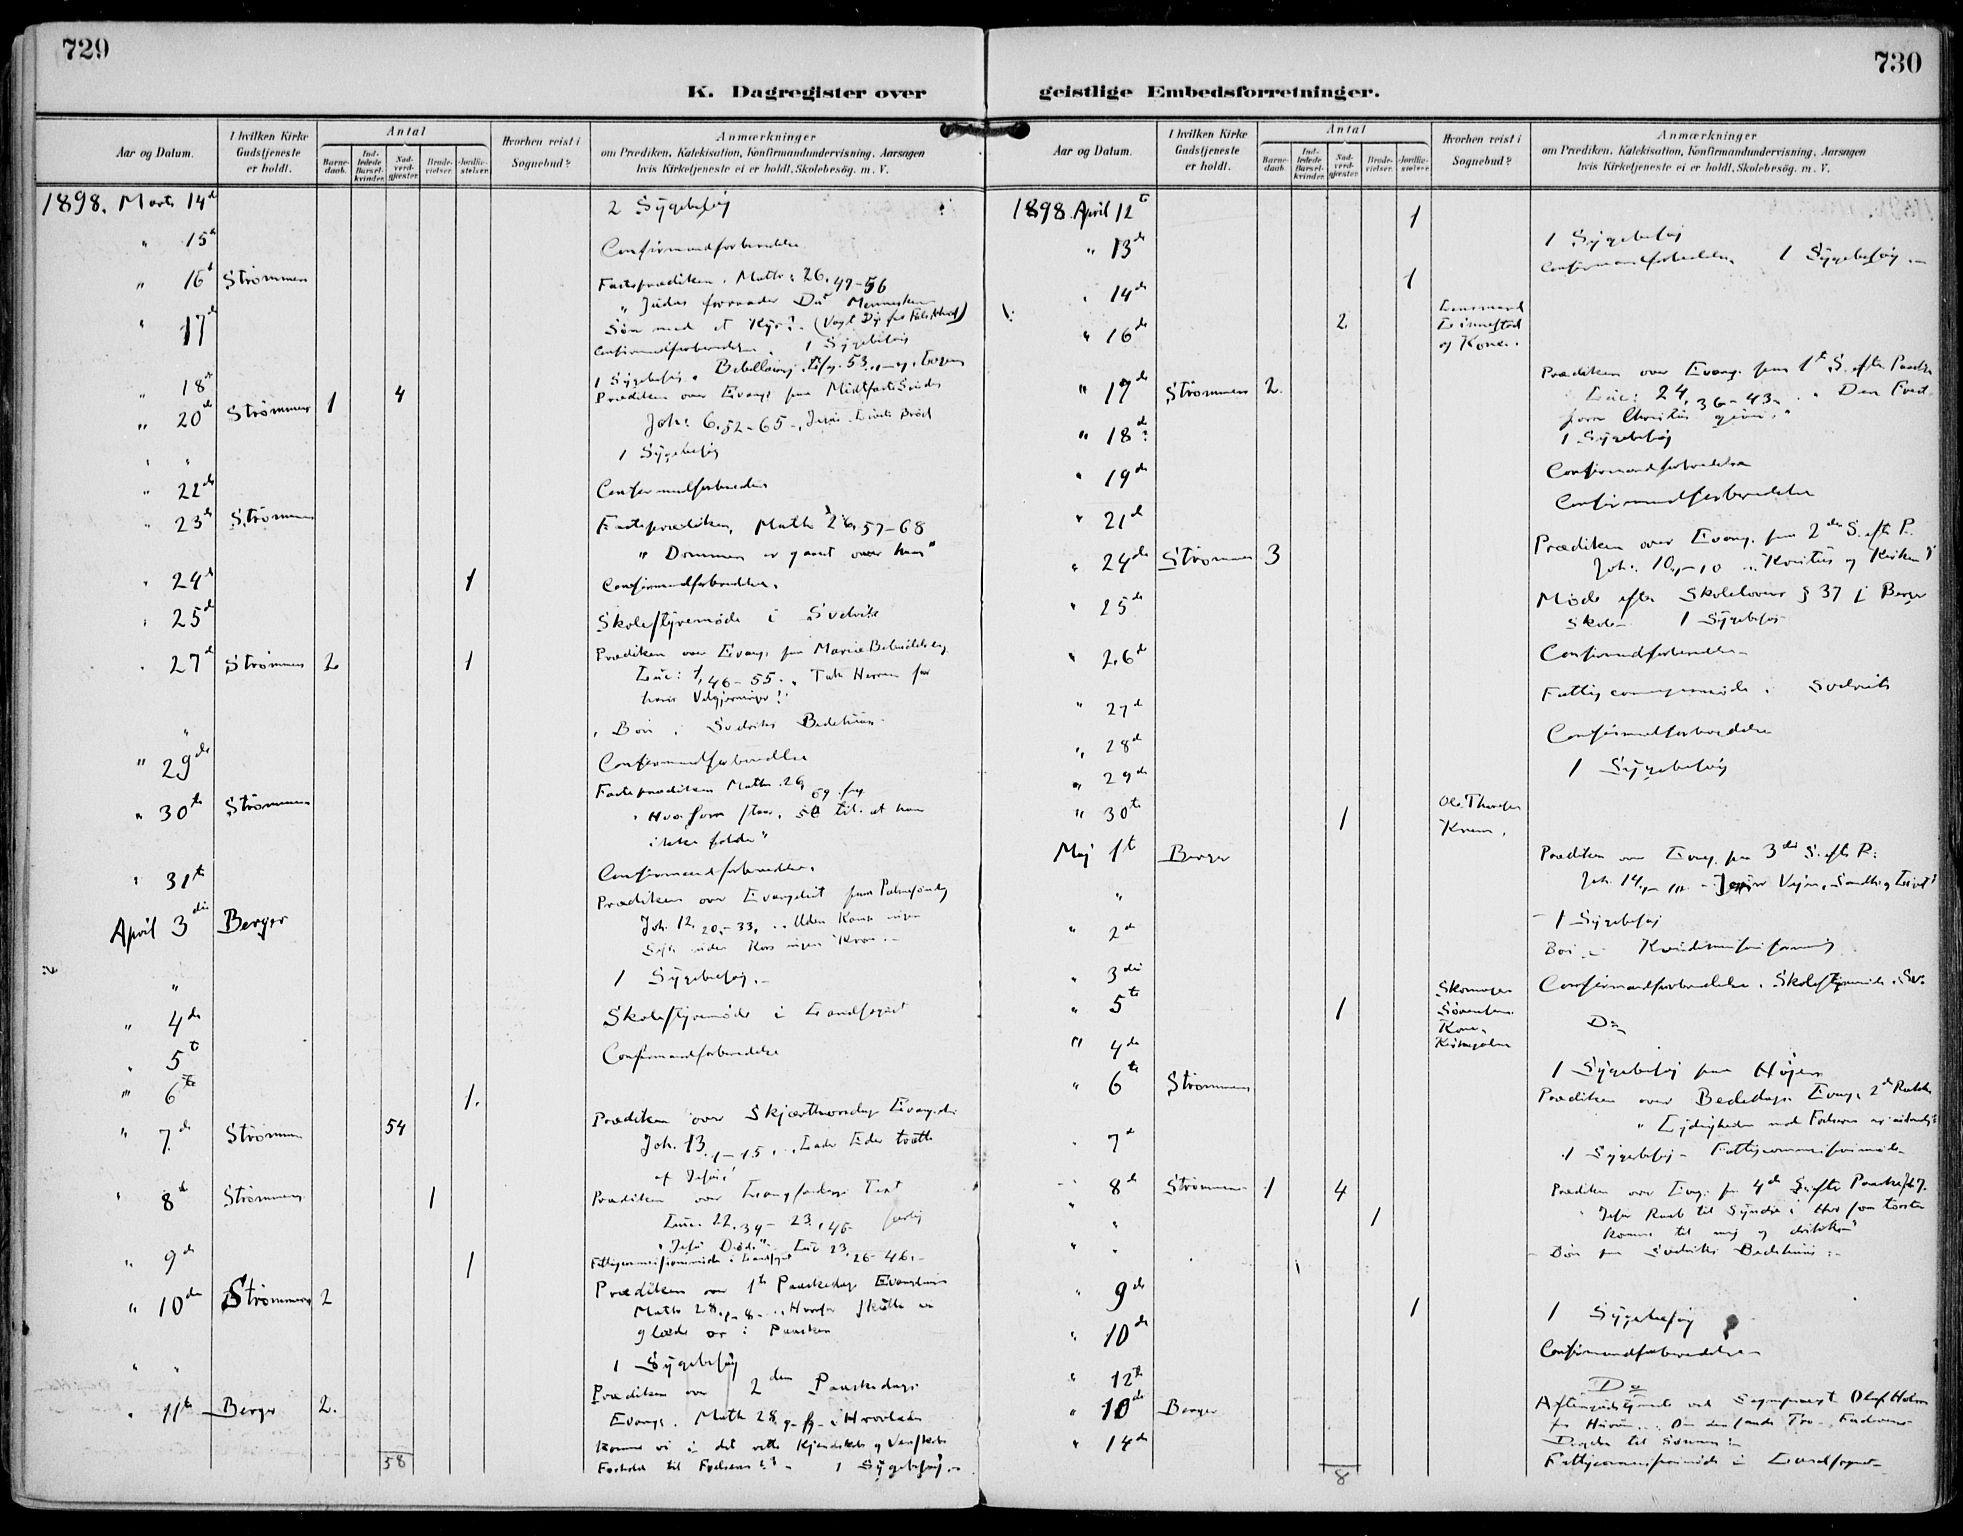 729
K. Dagregister over
Aar og Datum.
I hvilken Kirke Gudstjeneste er holdt.
Antal
Barnedaab.
Indledede Barselkvinder.
Nadverdgjæster.
Brudevielser.
Jordfæstelser.
Hvorhen reist i Sognebud?
Anmærkninger
om Prædiken, Katekisation, Konfirmandundervisning, Aarsagen
hvis Kirketjeneste ei er holdt, Skolebesøg. m. V.
1898. Marts 14d 2 Sygebesøg
" 15d Confirmandforberedelse
" 16d Strømmen Fasteprædiken. Matth: 26, 47-56
" Judas forraader Du Menneskens
" 17d Søn med et Kys?
Confirmandforberedelse 1 Sygebesøg
" 18d 1 Sygebesøg. Bibellæsning
" 20d Strømmen 1 4 Prædiken over Evang. paa Midfaste Søndag
Joh: 6,52-65. Brød
" " 1 Sygebesøg
" 22de Confirmandforberedelse
" 23d Strømmen Fasteprædiken, Matth 26,57-68
" Dommen er gaaet over ham"
" 24d 1 Confirmandforberedelse.
" 25d Skolestyremøde i Svelvik
" 27d Strømmen 2 1 Prædiken over Evang. paa Mariæ Bebudelsesdag
Luc: 1,46-55. " Tak Herren for
hans Velgjerninger!"
" Bøn i Svelviks Bedehus.
" 29de Confirmandforberedelse
" 30te Strømmen Fasteprædiken Matth. 26,69
" Hvo som staar, se til at han
ikke falder"
" 31te Confirmandforberedelse.
April 3die Berger Prædiken over Evangeliet paa Palmesøndag
Joh. 12,20-33. " Uden Kamp ingen
Seir, uden Kors ingen Krone.
" 1 Sygebesøg.
" 4de Skolestyremøde i Landsognet
" 5t Confirmandforberedelse
" 6te 1.
" 7de Strømmen 54 Prædiken over Skjærthorsdags Evang.
Joh. 13,1-15. "Lader Eder tvætte
af Jesus!
" 8d Strømmen 1 Prædiken over Langfredags Text
Luc. 22,39 - 23,46
"Jesu Død". Luc 23,26-46.
" 9de 1 Fattigcommissionsmøde i Landsognet
" 10de Strømmen 2 Prædiken over 1ste Paaskedags Evangelium
Matth 28,1-8. "Hvorfor skulle vi
glæde os i Paasken
" " 1 Sygebesøg
" 11te Berger 2. Prædiken over 2den Paaskedags
Evang. Matth 28,
komme vi i det rette Kjendskabs og Venskabs
Forhold til Frelseren? 1 Sygebesøg.
58
730
geistlige Embedsforretninger.
Aar og Datum.
I hvilken Kirke Gudstjeneste er holdt.
Antal
Barnedaab.
Indledede Barselkvinder.
Nadverdgjæster.
Brudevielser.
Jordfæstelser.
Hvorhen reist i Sognebud?
Anmærkninger
om Prædiken, Katekisation, Konfirmandundervisning, Aarsagen
hvis Kirketjeneste ei er holdt, Skolebesøg. m. V.
1898. April 12t 1 1 Sygebesøg
" 13de Confirmandforberedelse. 1 Sygebesøg.
" 14de 1
" 16de 2 Lensmand
Linnestad
og Kone.
" 17de Strømmen 2. Prædiken over Evang. paa 1ste S. efter Paaske
Luc: 24,36-43. " Den Fred
som Christus giver."
" 18d 1 Sygebesøg
" 19de Confirmandforberedelse
" 21d Confirmandforberedelse
" 24de Strømmen 3 Prædiken over Evang. paa 2den S. efter P.
Joh: 10,1-10 " Kristus og Kirken"
" 25de Møde efter Skolelovens § 37 i Berger
Skole 1 Sygebesøg
" 26d Confirmandforberedelse
" 27d Fattigcommissionsmøde i Svelvik
" 28d Confirmandforberedelse
" 29de 1 Sygebesøg
" 30te 1 Ole Thorsen
Maj 1t Berger Prædiken over Evang. paa 3die S. efter P.
Joh. 14, Jesus Vejen, Sandhed og Livet"
" 1 Sygebesøg
" 2d Bøn i Kvindemissionsforening
" 3die Confirmandforberedelse. Skolestyremøde i Sv.
" 5te 1 Skomager
Sørensens
Kone
Do
" 4de
" 6te Strømmen 1 Sygebesøg paa Højen
Prædiken over Bededags Evang. 2d Række
" 7d 1 Sygebesøg - Fattigcommissionsmøde
" 8d Strømmen 1 4 Prædiken over Evang. paa 4de S. efter Paaske
Jesu Raab til Syndere: Hvo som tørster
komme til mig og drikke"
" " 1
" " Bøn paa Svelviks Bedehus.
" 9de 1 1 Sygebesøg
" 10de Confirmandforberedelse
" 12te Do
" 10de Berger Aftengudstjeneste ved Sogneprest Olaf Holm
Om den sande Tro
" 14de Fattigcommissionsmøde i Landsognet
8